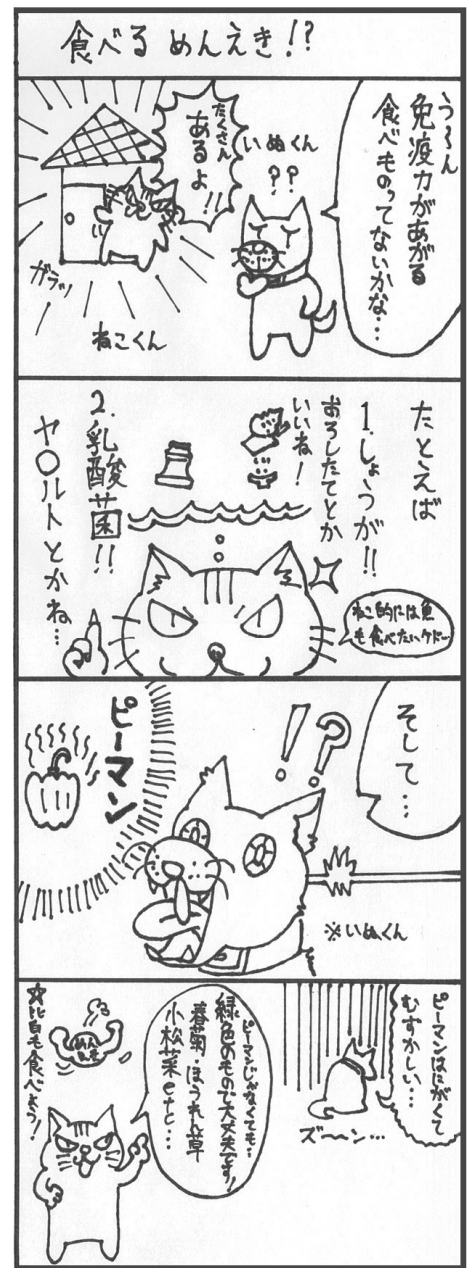 食べる めんえき!?
う〜ん
免疫力があがる
食べものってないかな…
いぬくん
??
たくさん
あるよ!!
ガラッ
ねこくん
たとえば
1.しょうが!!
おろしたてとか
いいね!
2.乳酸菌!!
ヤ〇ルトとかね…
ねこ的には魚
も食べたいケド…
そして…
!?
※いぬくん
ピーマン
ピーマンはにがくて
むずかしい…
ズ〜〜ン…
ピーマンじゃなくても…
緑色のもので大丈夫です!
春菊・ほうれん草
小松菜etc…
めん
えき
☆皆も食べよう!